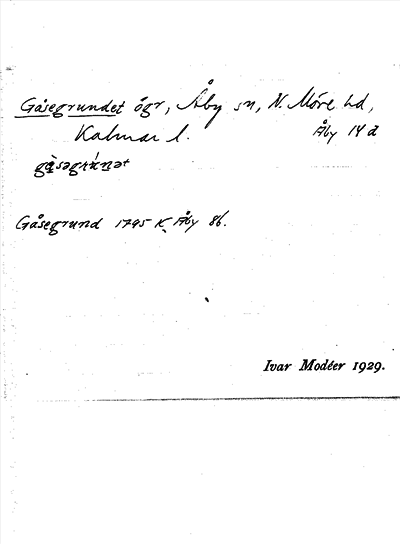 Gåsegrundet ögr, Åby sn, N. Möre hd,
Kalmar l. Åby 14 d
gåsegrunet
Gåsegrund 1795 K Åby 86.
Ivar Modéer 1929.